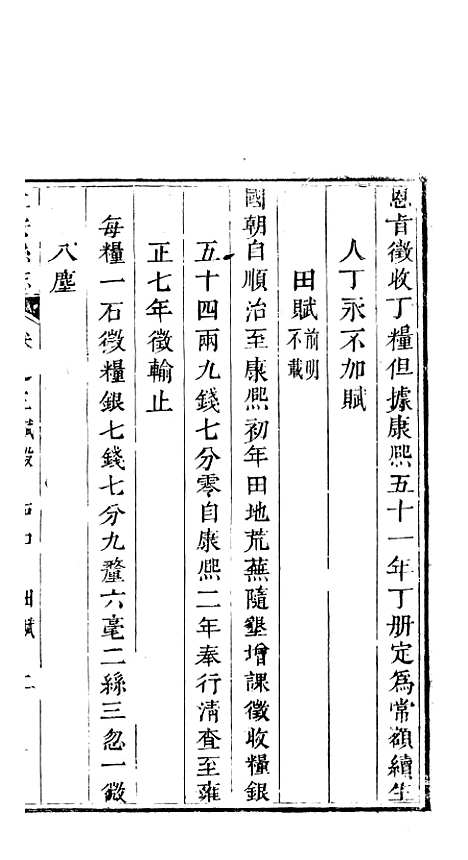 恩旨徵收丁糧但據康熙五十一年丁册定為常額續生
人丁永不加賦
田賦 前明不載
國朝自順治至康熙初年田地荒蕪隨墾增課徵收糧銀
五十四兩九錢七分零自康熙二年奉行清查至雍
正七年徵輸止
每糧一石徵糧銀七錢七分九釐六毫二絲三忽一微
八塵
田賦 二